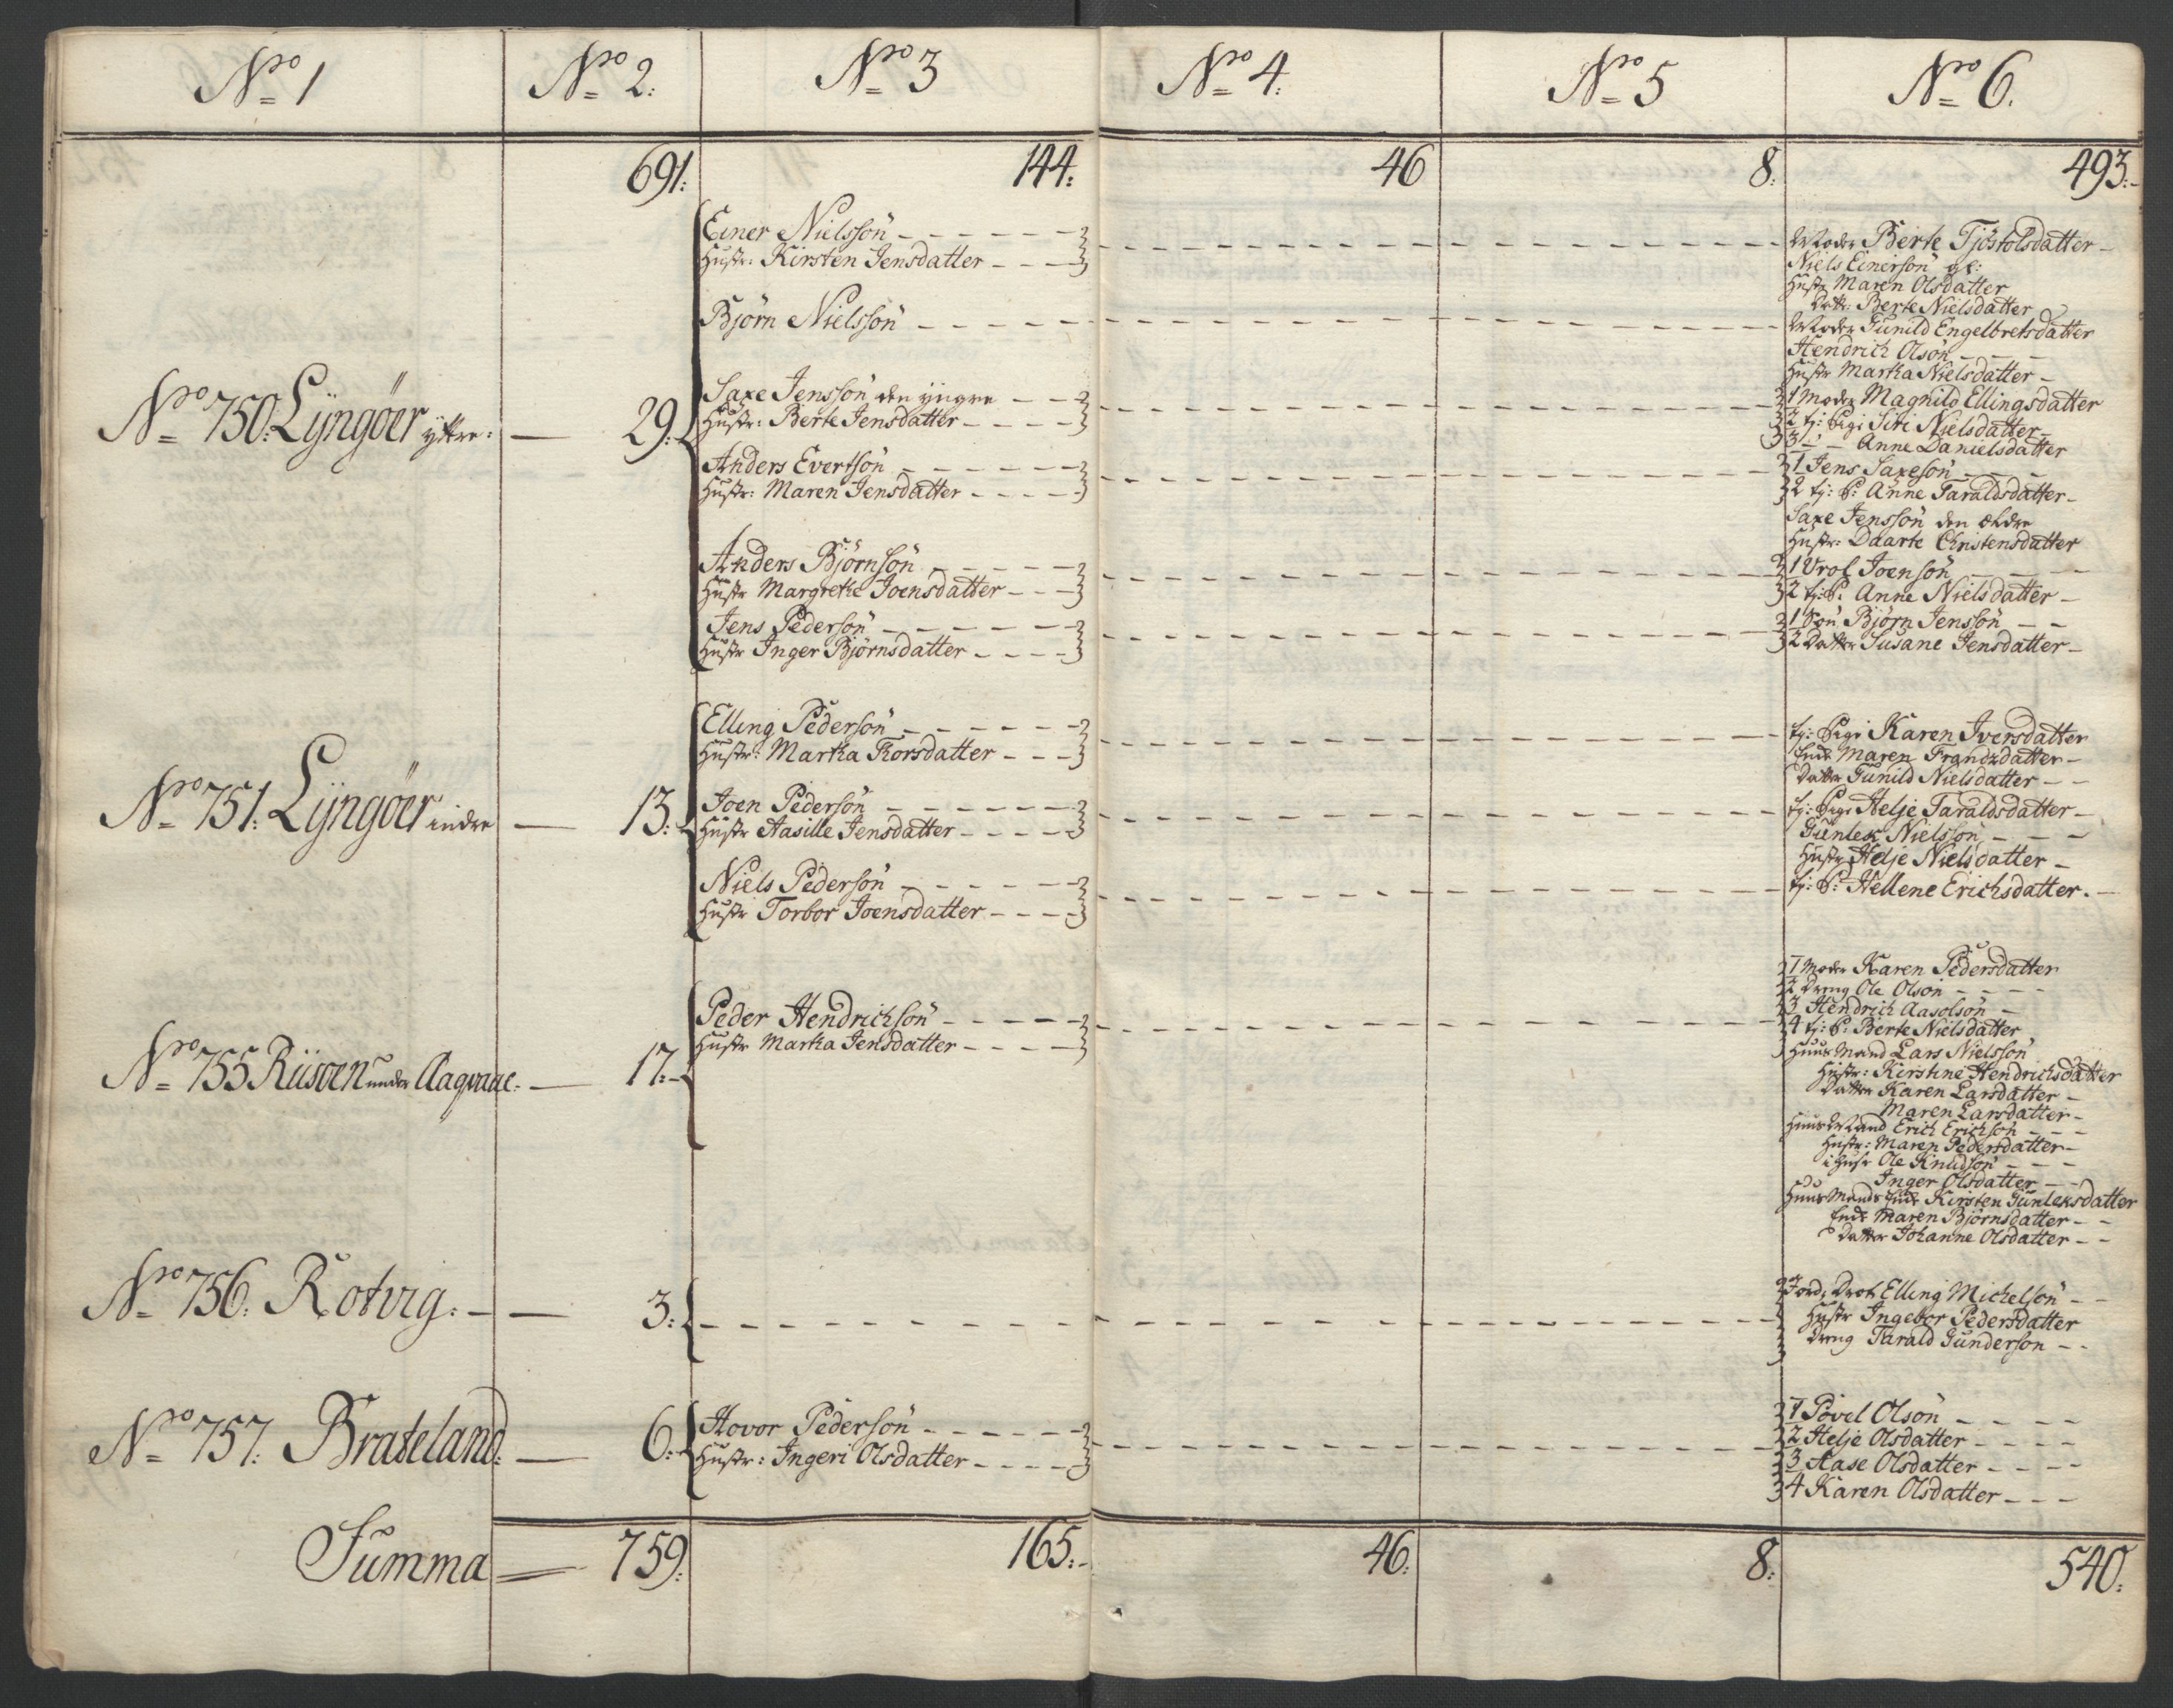 Nro 1 Nro 2: Nro 3 Nro 4: Nro 5 Nro 6.
691: 144: 46 8: 493:
Nro 750: Lÿngöer ÿttre: 29:
Einer Nielssön
Hustr: Kirsten Jensdatter
Björn Nielssön
Saxe Jenssön den ÿngre
Hustr: Berte Jensdatter
Anders Evertsön
Hustr: Maren Jensdatter
Anders Björnsön
Hustr Margrethe Joensdatter
Jens Pedersön
Hustr Inger Björnsdatter
Moder Berte Tjöstolsdatter
Niels Einersön gl:
Hustr Maren Olsdatter
Datt: Berte Nielsdatter
Moder Gunild Engelbretsdatter
Hendrich Olsön
Hustr Martha Nielsdatter
1 Moder Magnild Ellingsdatter
2 tj: Pige Siri Nielsdatter
3 Anne Danielsdatter
1 Jens Saxesön
2 tj: P: Anne Taraldsdatter
Saxe Jenssön den ældre
Hustr: Daarte Christensdatter
1 Vrol Joensön
2 tj: P. Anne Nielsdatter
1 Sön Björn Jenssön
2 Datter Susane Jensdatter
Nro 751: Lÿngöer indre 13:
Elling Pedersön
Hustr: Martha Thorsdatter
Joen Pedersön
Hustr Aasille Jensdatter
Niels Pedersön
Hustr Torbor Joensdatter
tj: Pige Karen Iversdatter
Enke Maren Frandzdatter
Datter Gunild Nielsdatter
tj: Pige Helje Taraldsdatter
Gunlek Nielssön
Hustr Helje Nielsdatter
tj: P: Hellene Erichsdatter.
Nro 755 Riisöen under Aaqvaac. 17:
Peder Hendrichsön
Hustr Martha Jensdatter
1 Moder Karen Pedersdatter
2 Dreng Ole Olsön
3 Hendrich Aasolsön
4 tj: P: Berte Nielsdatter
Huus Mand Lars Nielssön
Hustr: Kirstine Hendrichsdatter
Datter Karen Larsdatter
Maren Larsdatter
Huus Mand Erich Erichsön
Hustr: Maren Pedersdatter
i Huse Ole Knudsön
Inger Olsdatter
Huus Mands Enke Kirsten Gunleksdatter
Enke Maren Björnsdatter
Datter Johanne Olsdatter
Nro 756. Rotvig: 3:
Jord: Drot Elling Michelsön
Hustr Ingebor Pedersdatter
Dreng Tarald Gundersön
Nro 757: Brateland: 6:
Hovor Pedersön
Hustr: Ingeri Olsdatter
1 Povel Olsön
2 Helje Olsdatter
3 Aase Olsdatter
4 Karen Olsdatter
Summa 759: 165: 46: 8: 540: